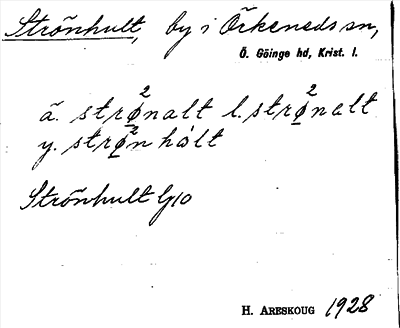 Strönhult, by i Örkeneds sn,
Ö. Göinge hd, Krist. l.
ä. strø̱²nalt l. strø̱²nalt
y. strø̱²n hålt
Strönhult
H. ARESKOUG 1928